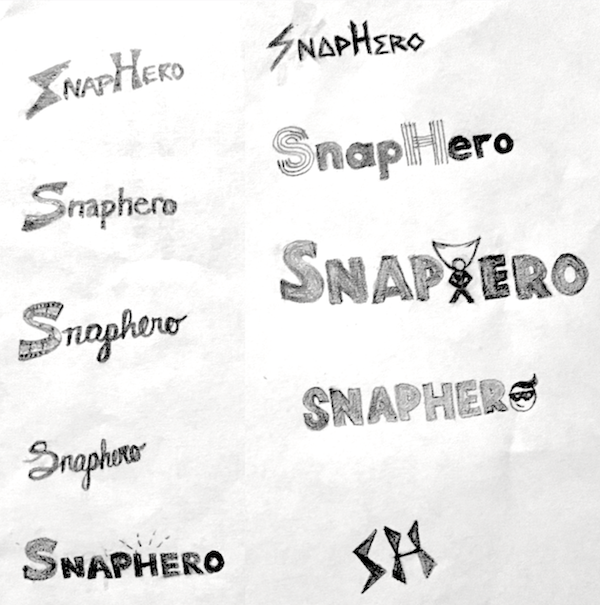 SNAPHERO
Snaphero
Snaphero
Snaphero
SNAPHERO
SNAPHERO
SnapHero
SNAPHERO
SNAPHERO
SH